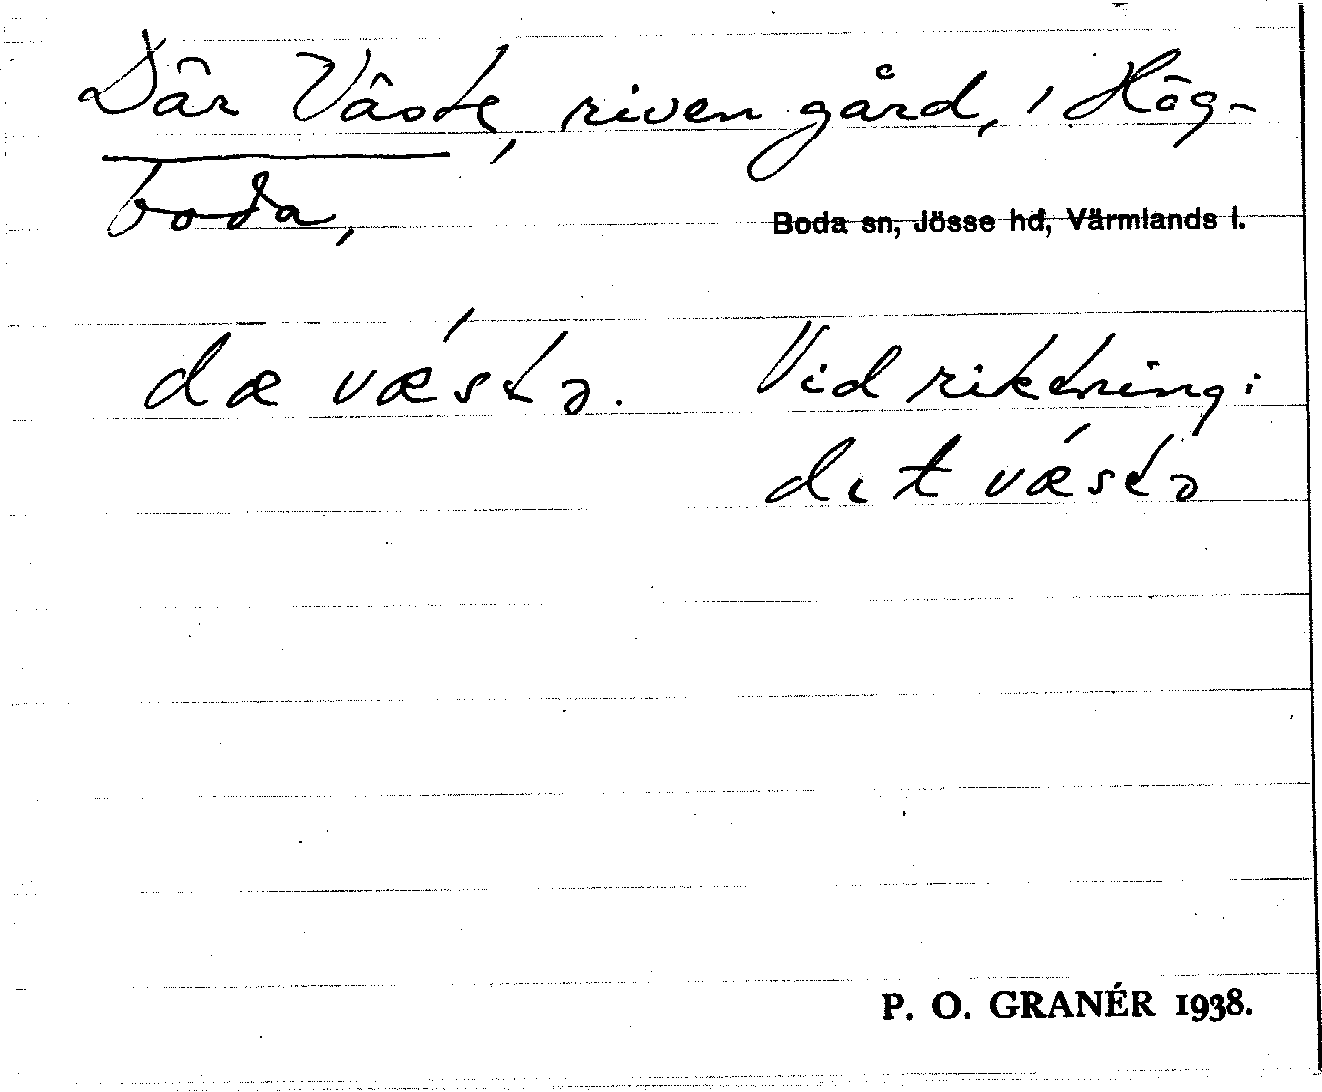 Där Väste, riven gård, i Hög-
boda,
Boda sn, Jösse hd, Värmlands l.
dæ vǽstə. Vid riktning:
dit vǽstə
P. O. GRANÉR 1938.